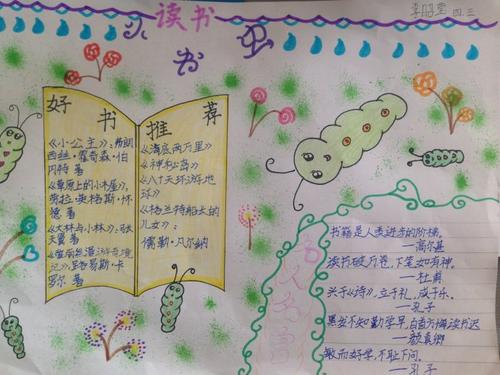 读书
小书虫
四.三
好书推荐
《小公主》:弗朗
西丝·霍奇森·伯
内特 著
《草原上的小木屋》,
劳拉·英格斯·怀
德 著
《大林与小林》:张
天翼 著
《爱丽丝漫游奇境
记》,路易斯·卡
罗尔 著
《海底两万里》
《神秘岛》
《八十天环游地
球》
《格兰特船长的
儿女》:
儒勒·凡尔纳
名人名言
书籍是人类进步的阶梯。
——高尔基
读书破万卷,下笔如有神。
——杜甫
兴于《诗》,立于礼,成于乐。
——孔子
黑发不知勤学早,白首方悔读书迟
——颜真卿
敏而好学,不耻下问。
——孔子